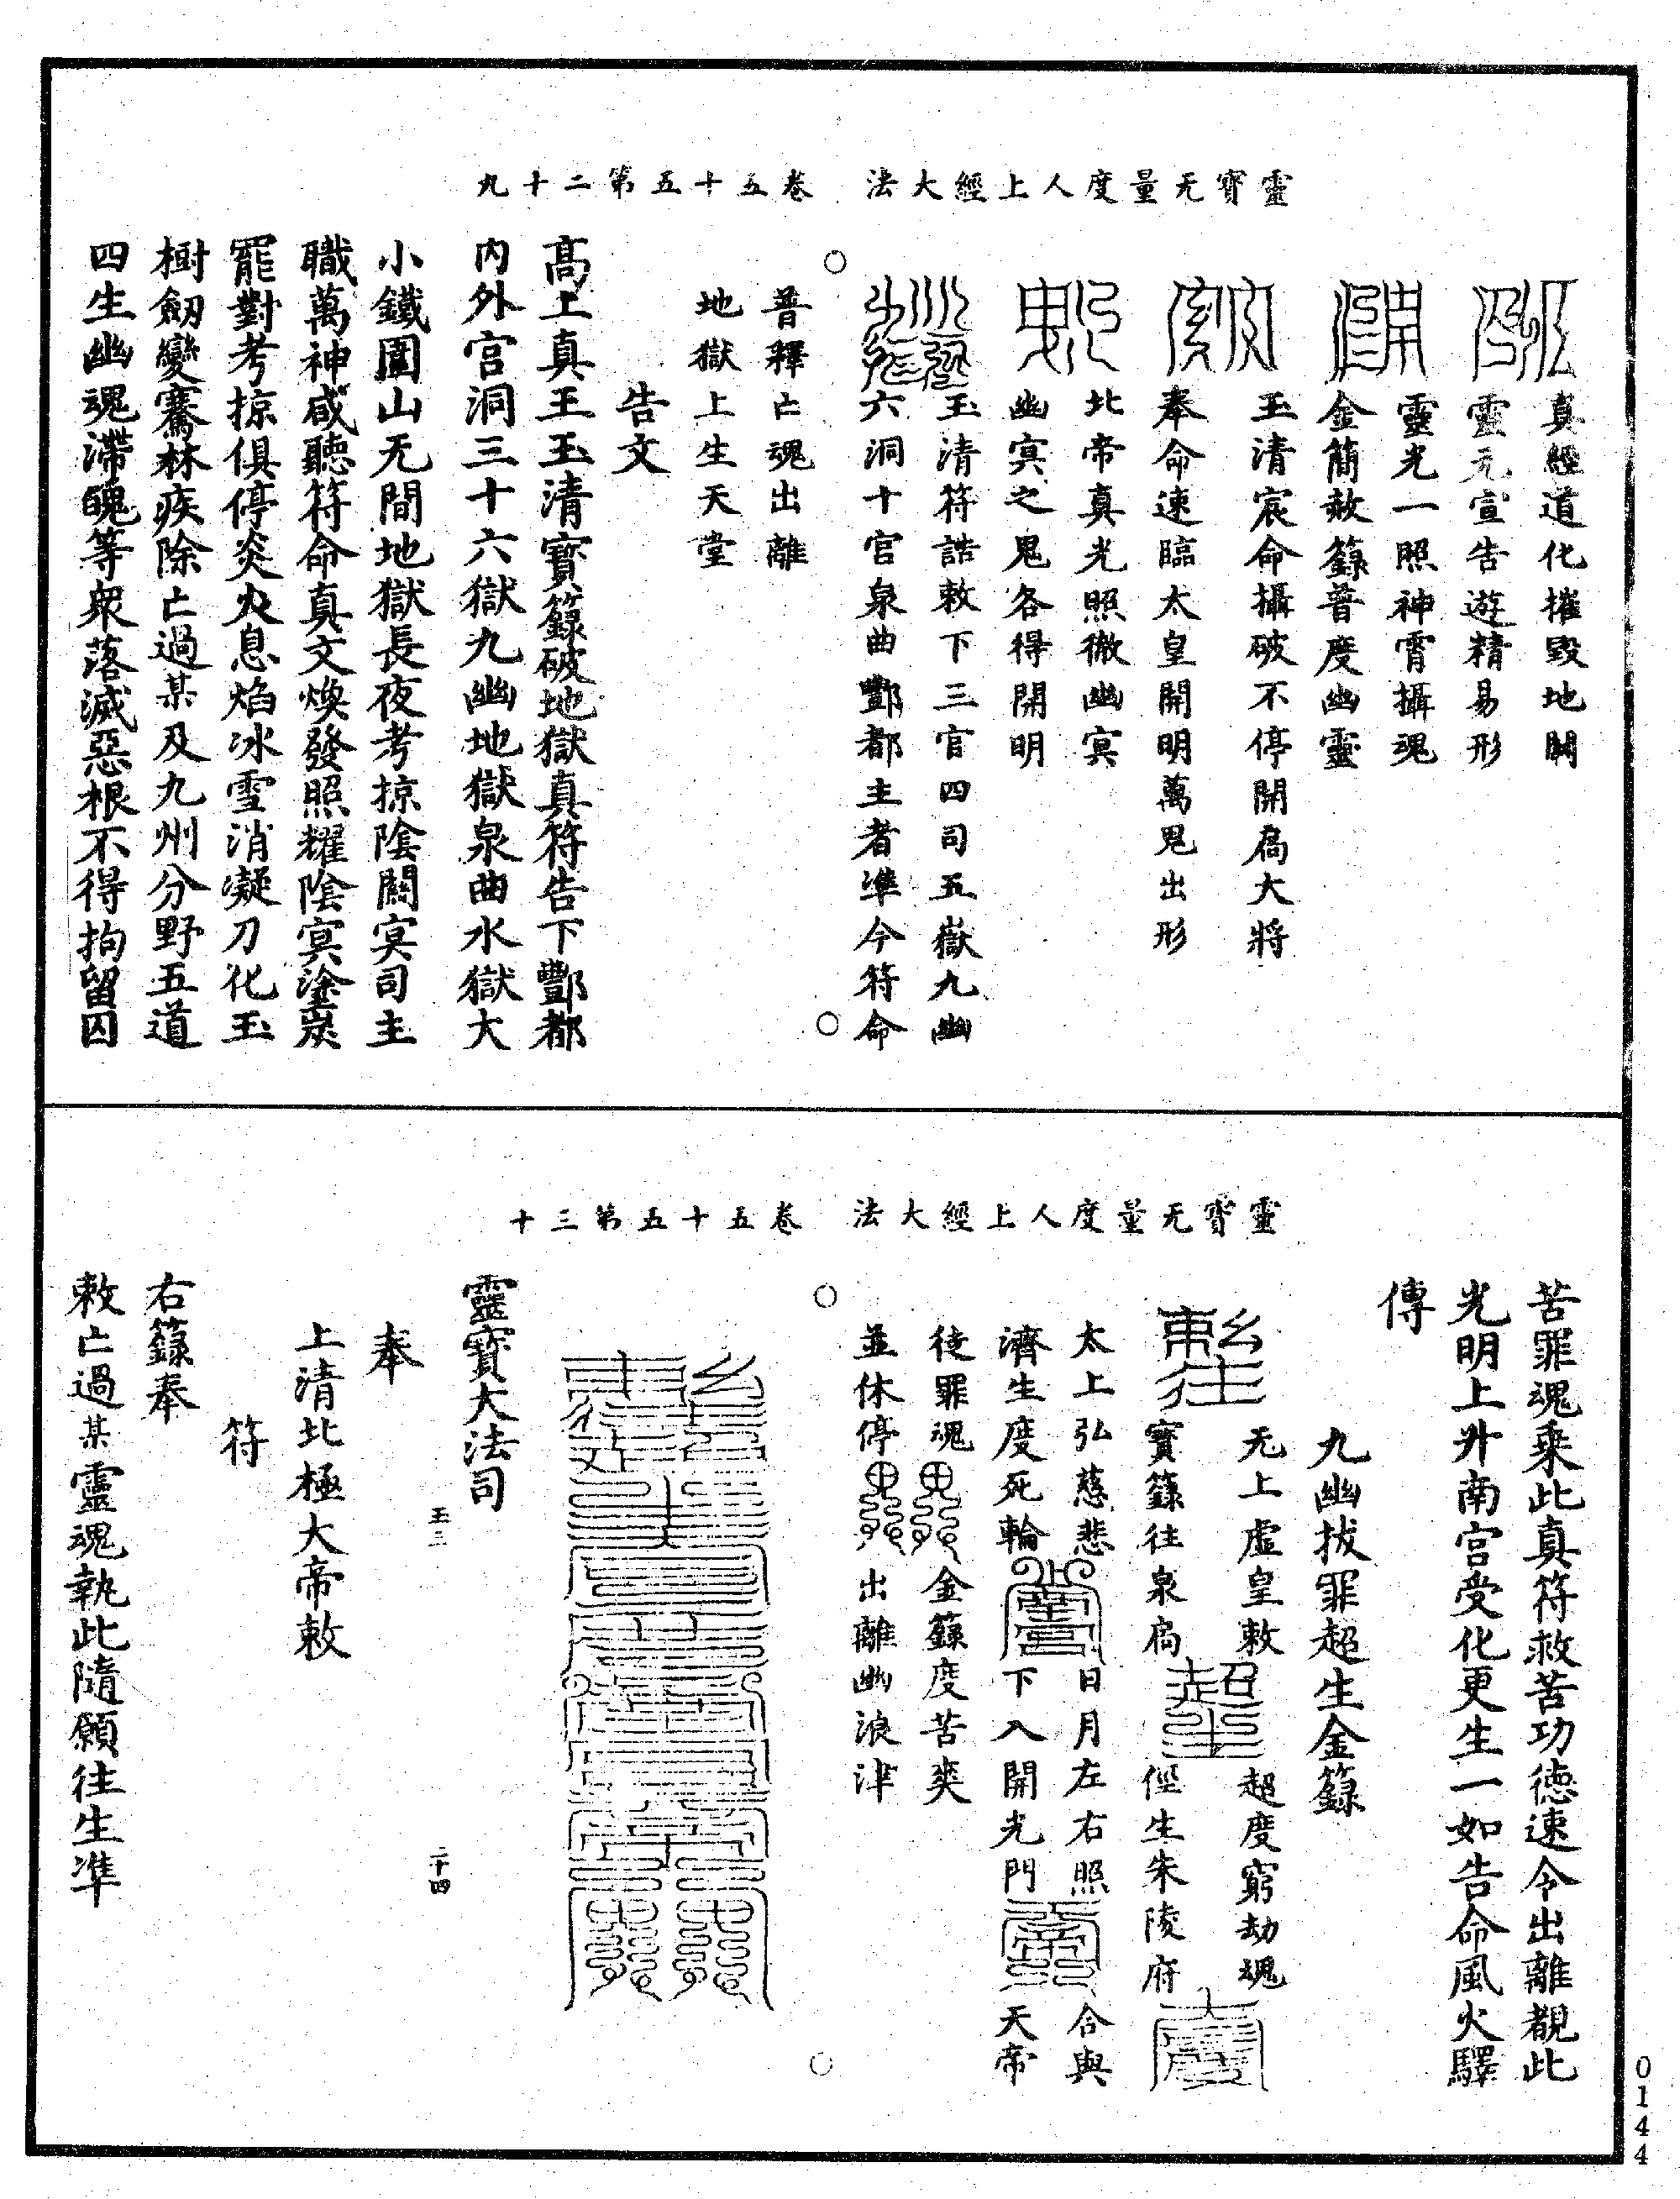 靈寶无量度人上經大法 卷五十五第二十九
真經道化摧毀地關
靈元宣告遊精易形
靈光一照神霄攝魂
金簡赦籙普度幽靈
玉清宸命攝破不停開扃大將
奉命速臨太皇開明萬鬼出形
北帝真光照徹幽冥
幽冥之鬼各得開明
玉清符誥敕下三官四司五嶽九幽
六洞十官泉曲酆都主者準今符命
普釋亡魂出離
地獄上生天堂
告文
高上真王玉清寶籙破地獄真符告下酆都
內外宫洞三十六獄九幽地獄泉曲水獄大
小鐵圍山无間地獄長夜考掠陰關冥司主
職萬神咸聽符命真文煥發照耀陰冥塗炭
罷對考掠俱停炎火息焰冰雪消凝刀化玉
樹劒變騫林疾除亡過某及九州分野五道
四生幽魂滯魄等衆落滅惡根不得拘留囚
靈寶无量度人上經大法 卷五十五第三十
苦罪魂乘此真符救苦功德速令出離覩此
光明上升南宫受化更生一如告命風火驛
傳
九幽拔罪超生金籙
无上虛皇敕 超度窮劫魂
寶籙往泉扃 俓生朱陵府
太上弘慈悲 日月左右照 合與
濟生度死輪 下入開光門 天帝
徒罪魂 金籙度苦爽
並休停 出離幽浪津
靈寶大法司
王三 二十四
奉
上清北極大帝敕
符
右籙奉
敕亡過某靈魂執此隨願往生準
0144